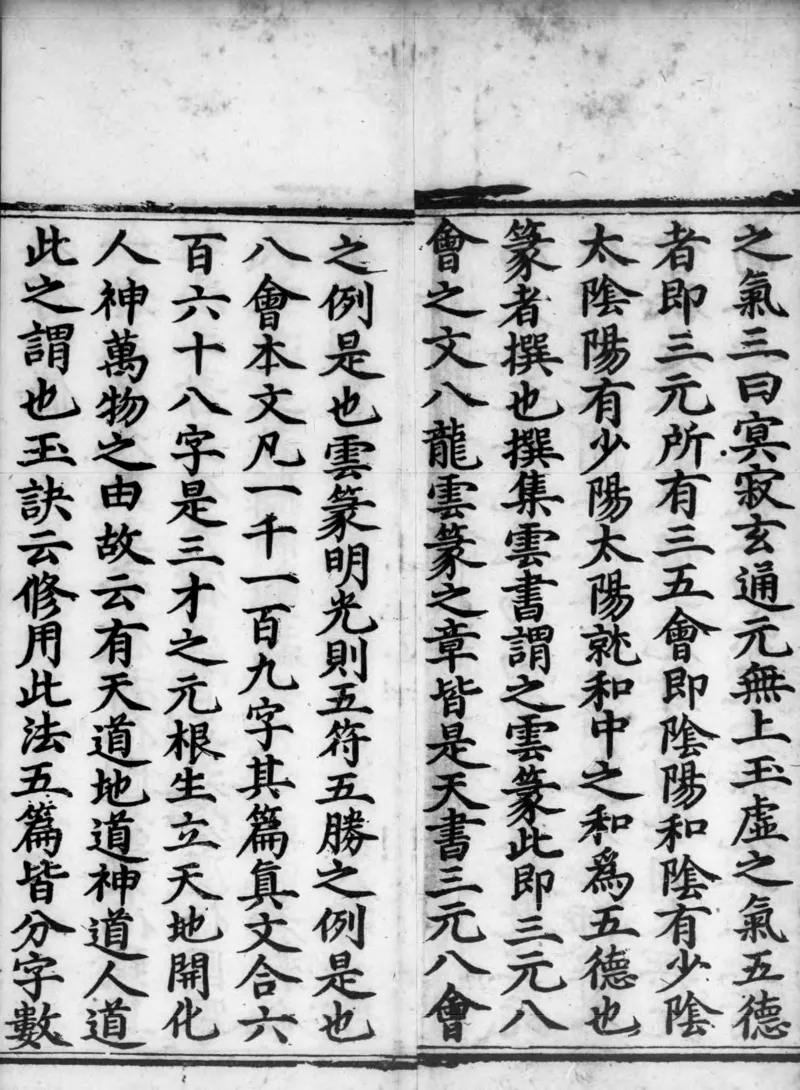 之氣三曰㝠寂玄通元無上玉虛之氣五德
者即三元所有三五會即陰陽和陰有少陰
太陰陽有少陽太陽就和中之和爲五德也
篆者撰也撰集雲書謂之雲篆此即三元八
會之文八龍雲篆之章皆是天書三元八會
之例是也雲篆明光則五符五勝之例是也
八會本文凡一千一百九字其篇真文合六
百六十八字是三才之元根生立天地開化
人神萬物之由故云有天道地道神道人道
此之謂也玉訣云修用此法五篇皆分字數